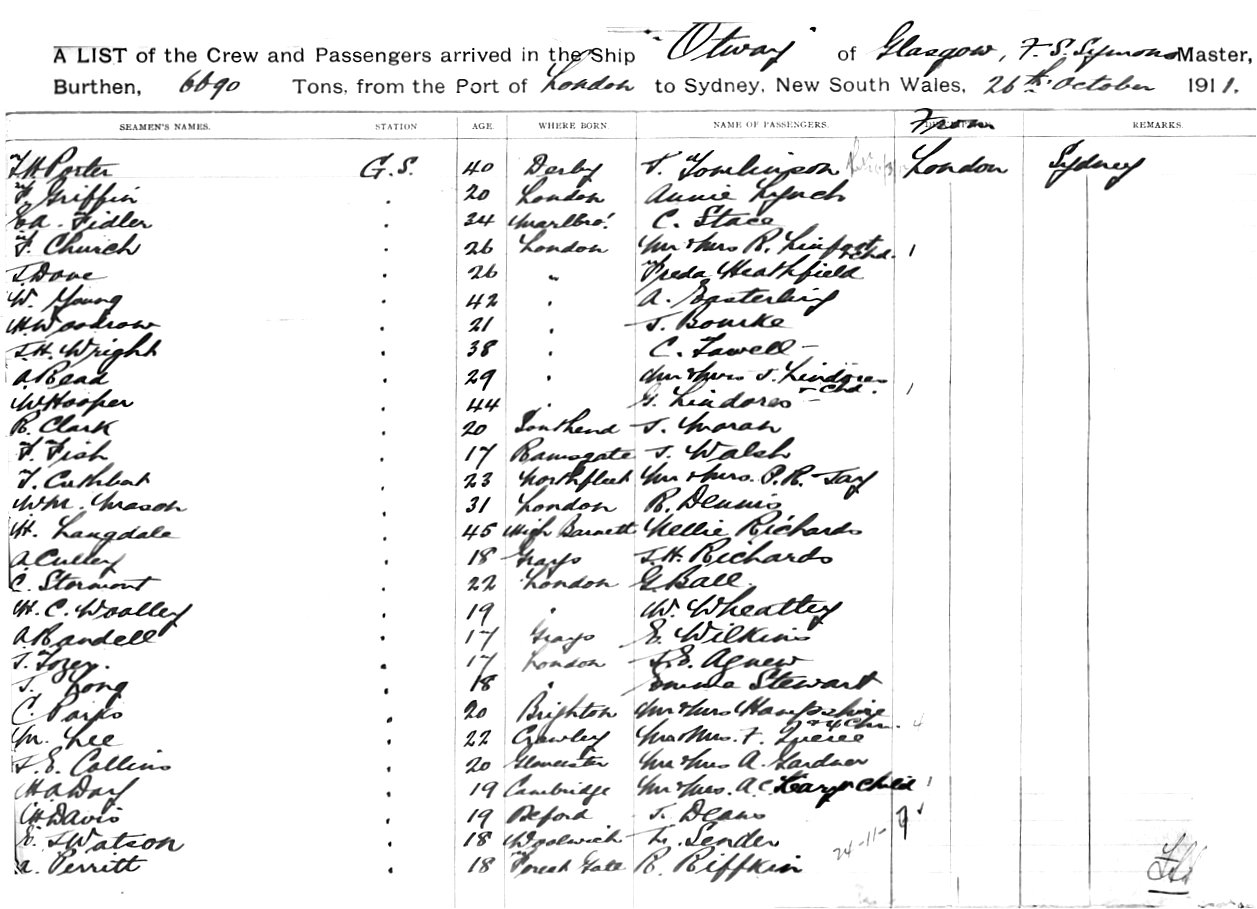 A LIST of the Crew and Passengers arrived in the Ship "Otway" of Glasgow, F. S. Symons Master,
Burthen, 6690 Tons, from the Port of London to Sydney, New South Wales, 26th October 1911.
SEAMEN'S NAMES. STATION AGE. WHERE BORN. NAME OF PASSENGERS. From REMARKS.
Porter G.S. 40 Derby T. Tomlinson London Sydney
F. Griffin . 20 London Annie Lynch
EA. Fidler . 34 Marlbro'. C. Stace
F. Church . 26 London Mr & Mrs R. Linfoot & chd. 1
T. Dove . 26 " Freda Heathfield
W. Young . 42 . A. Easterling
H. Woodrow . 21 . T. Bourke
T.H. Wright . 38 . C. Tawell -
A. Read . 29 . Mr & Mrs J. Lindores & chd. 1
W Hooper . 44 . G. Lindores -
R. Clark . 20 Southend J. Moran
F. Fish . 17 Ramsgate J. Walsh
T. Cuthbert . 23 Northfleet Mr & Mrs. P.R. Jay
WM. Mason . 31 London R. Dennis
H. Langdale . 45 High Barnett Nellie Richards
A Culley . 18 Grays J.H. Richards
C. Stormont . 22 London G. Ball.
H. C. Woolley . 19 " W. Wheatley
A Randell . 17 Grays E. Wilkins
T. Tozer. . 17 London J.E. Agnew
J. Long . 18 " Emma Stewart
C. Parris . 20 Brighton Mr & Mrs Hampshire & 4 Chn. 4
M. Lee . 22 Crawley Mr & Mrs. F. Queree
J. E. Collins . 20 Gloucester Mr & Mrs A. Gardner
H.A. Day . 19 Cambridge Mr & Mrs. A C. Child 1
H Davis . 19 Deford J. Deans 7
E. J Watson . 18 Woolwich L. Sender 24-11-
A. Perritt . 18 Forest Gate R. Riffkin